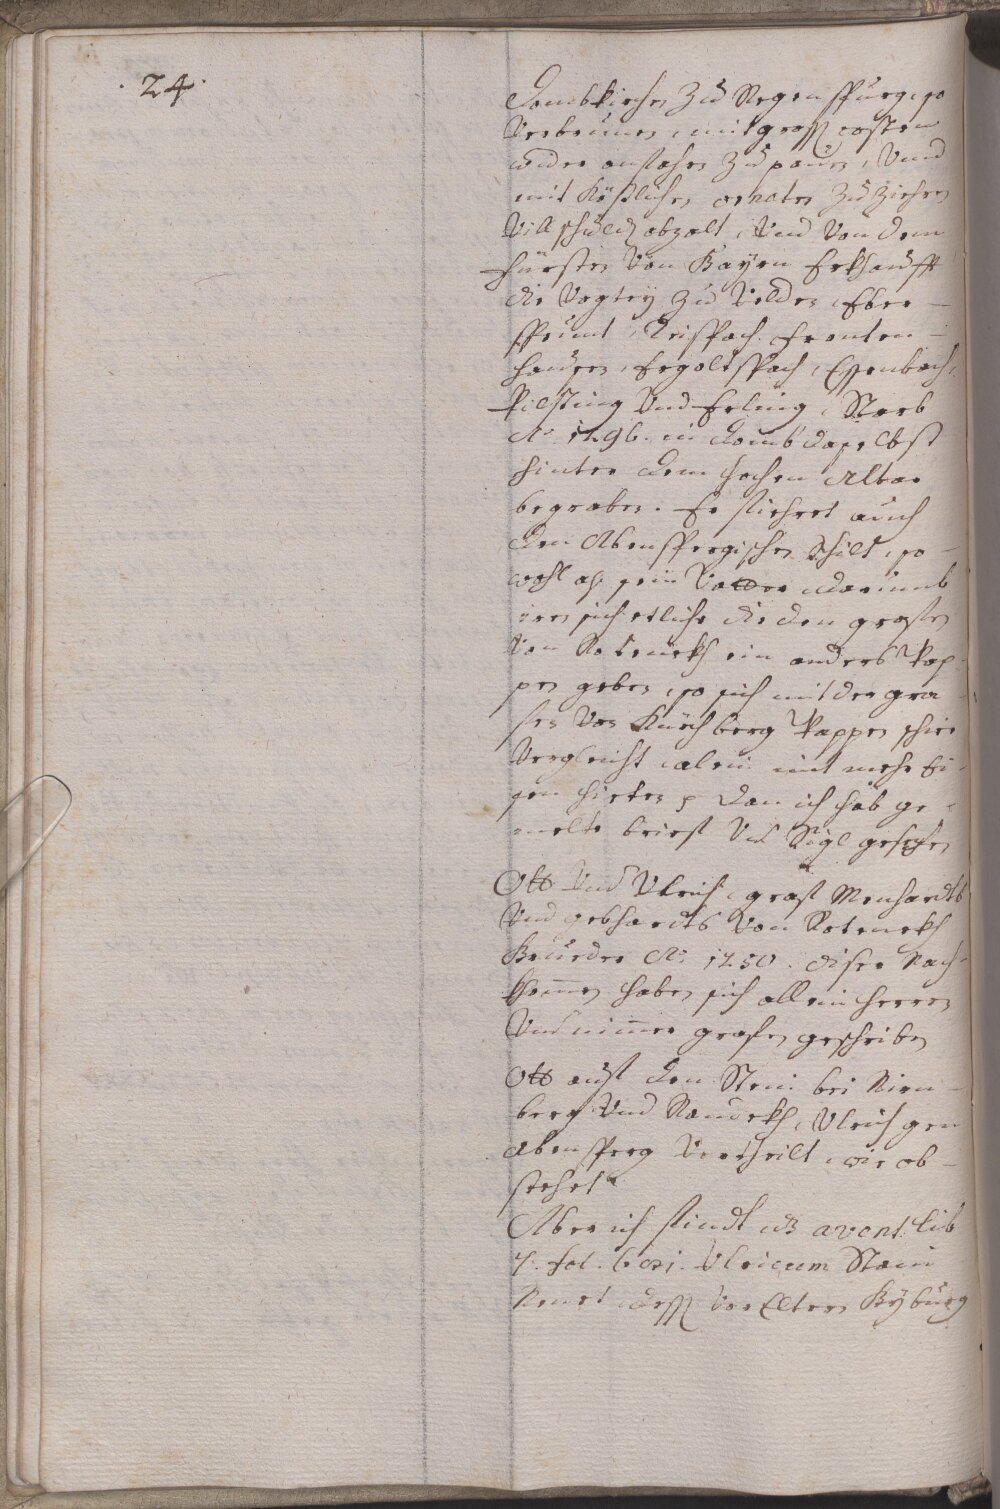 24.
Dombkirchen Zu Regenspurg, so
Verbrunen, mit gross costen
wider anfahen Zu pauen, Vnnd
mit Köstlichen ornaten Zu Ziehren
Vill schuld bezalt, Vnd Von dem
fürsten Von Bayrn Erkhaufft
die Vogtey Zu Vilden, Eber-
spaint, Teispach, Fronten-
hausen, Ergoltspach, Essenbach,
Pilsting Vnd Erling, Starb
Ao 1296. in Domb daselbst
hinter dem hochen Altar
begraben. Er fiehret auch
den Abenspergischen schilt, so-
wohl als sein Vatter darumb
irren sich etliche die den grafen
Von Rotenekh ein anders Wap-
pen geben, so sich mit der gra-
fen Von Kirchberg Wappen schier
Vergleicht allein mit mehr Fi-
gen hieten, dan ich hab ge-
melte brief Vnd Sigl gesehen
Ott Vnd Vlrich, graf Menhardts
Vnd gebhardts Von Rotenekh
Brueder Ao 1250. diser Nach-
khommen haben sich allein herren
Vnd nimmer grafen geschriben
Ott auf den Stein bei Rien-
berg Vnd Randekh, Vlrich gen
Abensperg Vertheilt, wie ob-
stehet
Aber ich findt aus avent. lib
7. fol. Vlricum Stain
Renet dess Vor Eltern Kyburg